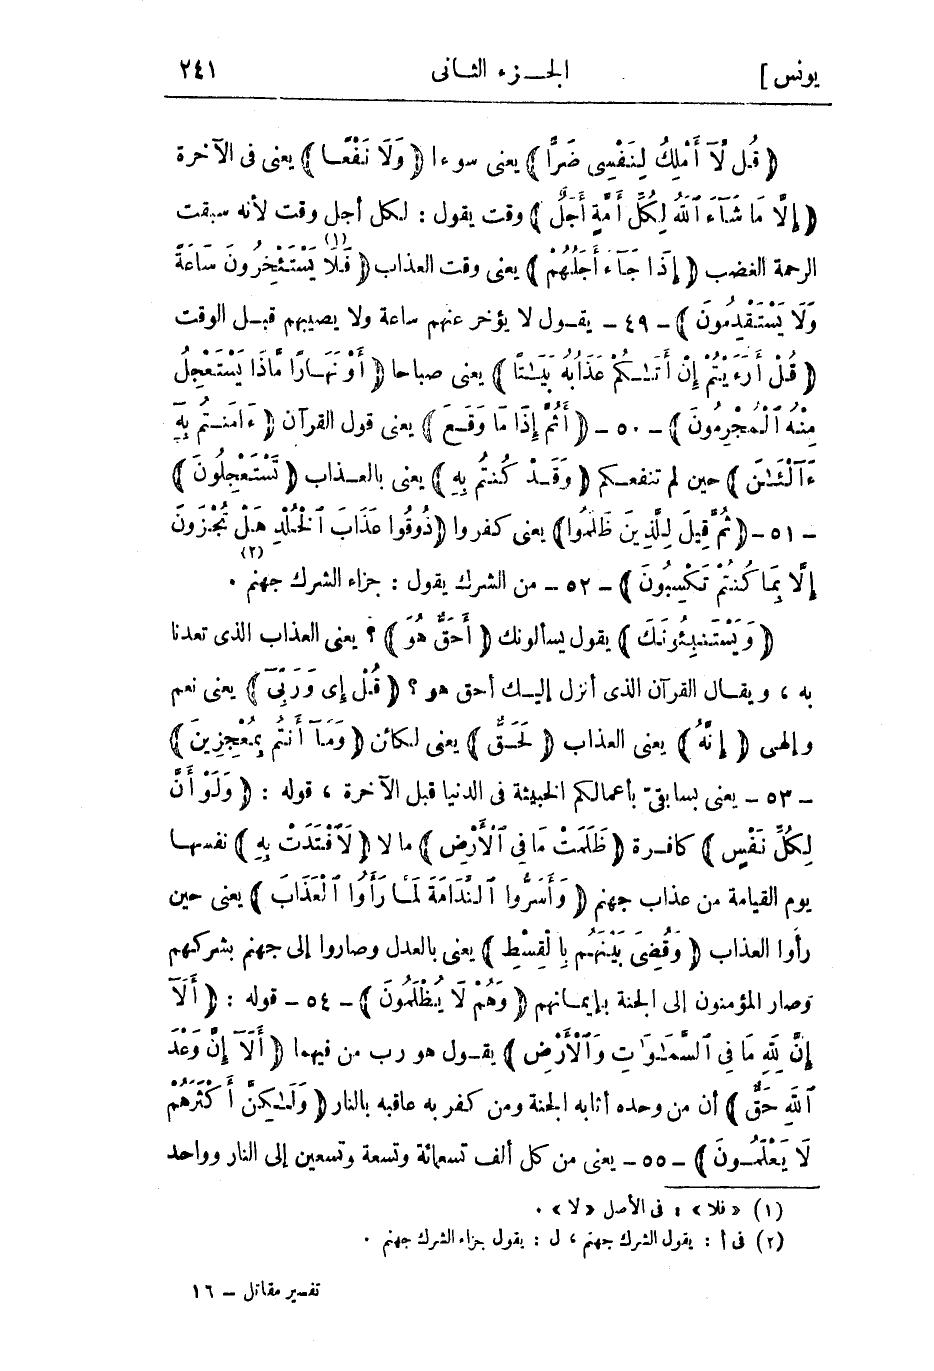 يونس ] الجزء الثانى ٢٤١
﴿ قُل لَّآ أَمْلِكُ لِنَفْسِى ضَرًّا ﴾ يعنى سوءا ﴿ وَلَا نَفْعًا ﴾ يعنى فى الآخرة
﴿ إِلَّا مَا شَآءَ ٱللَّهُ لِكُلِّ أُمَّةٍ أَجَلٌ ﴾ وقت يقول : لكل أجل وقت لأنه سبقت
الرحمة الغضب ﴿ إِذَا جَآءَ أَجَلُهُمْ ﴾ يعنى وقت العذاب ﴿ فَلَا (١) يَسْتَـْٔخِرُونَ سَاعَةً
وَلَا يَسْتَقْدِمُونَ ﴾ - ٤٩ - يقول لا يؤخر عنهم ساعة ولا يصيبهم قبل الوقت
﴿ قُلْ أَرَءَيْتُمْ إِنْ أَتَىٰكُمْ عَذَابُهُ بَيَـٰتًا ﴾ يعنى صباحا ﴿ أَوْ نَهَارًا مَّاذَا يَسْتَعْجِلُ
مِنْهُ ٱلْمُجْرِمُونَ ﴾ - ٥٠ - ﴿ أَثُمَّ إِذَا مَا وَقَعَ ﴾ يعنى قول القرآن ﴿ ءَامَنتُم بِهِٓ
ءَآلْـَٔـٰنَ ﴾ حين لم تنفعكم ﴿ وَقَدْ كُنتُم بِهِ ﴾ يعنى بالعذاب ﴿ تَسْتَعْجِلُونَ ﴾
- ٥١ - ﴿ ثُمَّ قِيلَ لِلَّذِينَ ظَلَمُوا ﴾ يعنى كفروا ﴿ ذُوقُوا عَذَابَ ٱلْخُلْدِ هَلْ تُجْزَوْنَ
إِلَّا بِمَا كُنتُمْ تَكْسِبُونَ ﴾ - ٥٢ - من الشرك يقول : جزاء الشرك جهنم (٢) .
﴿ وَيَسْتَنبِئُونَكَ ﴾ يقول يسألونك ﴿ أَحَقٌّ هُوَ ﴾ ؟ يعنى العذاب الذى تعدنا
به ، ويقال القرآن الذى أنزل إليك أحق هو ؟ ﴿ قُلْ إِى وَرَبِّىٓ ﴾ يعنى نعم
وإلهى ﴿ إِنَّهُ ﴾ يعنى العذاب ﴿ لَحَقٌّ ﴾ يعنى لكائن ﴿ وَمَآ أَنتُم بِمُعْجِزِينَ ﴾
- ٥٣ - يعنى بسابقىّ بأعمالكم الخبيثة فى الدنيا قبل الآخرة ، قوله : ﴿ وَلَوْ أَنَّ
لِكُلِّ نَفْسٍ ﴾ كافرة ﴿ ظَلَمَتْ مَا فِى ٱلْأَرْضِ ﴾ ما لا ﴿ لَٱفْتَدَتْ بِهِ ﴾ نفسها
يوم القيامة من عذاب جهنم ﴿ وَأَسَرُّوا ٱلنَّدَامَةَ لَمَّا رَأَوُا ٱلْعَذَابَ ﴾ يعنى حين
رأوا العذاب ﴿ وَقُضِىَ بَيْنَهُم بِٱلْقِسْطِ ﴾ يعنى بالعدل وصاروا إلى جهنم بشركهم
وصار المؤمنون إلى الجنة بإيمانهم ﴿ وَهُمْ لَا يُظْلَمُونَ ﴾ - ٥٤ - قوله : ﴿ أَلَآ
إِنَّ لِلَّهِ مَا فِى ٱلسَّمَـٰوَٰتِ وَٱلْأَرْضِ ﴾ يقول هو رب من فيهما ﴿ أَلَآ إِنَّ وَعْدَ
ٱللَّهِ حَقٌّ ﴾ أن من وحده أثابه الجنة ومن كفر به عاقبه بالنار ﴿ وَلَـٰكِنَّ أَكْثَرَهُمْ
لَا يَعْلَمُونَ ﴾ - ٥٥ - يعنى من كل ألف تسعمائة وتسعة وتسعين إلى النار وواحد
(١) « فلا » : فى الأصل « لا » .
(٢) فى أ : يقول الشرك جهنم ، ل : يقول جزاء الشرك جهنم .
تفسير مقاتل - ١٦